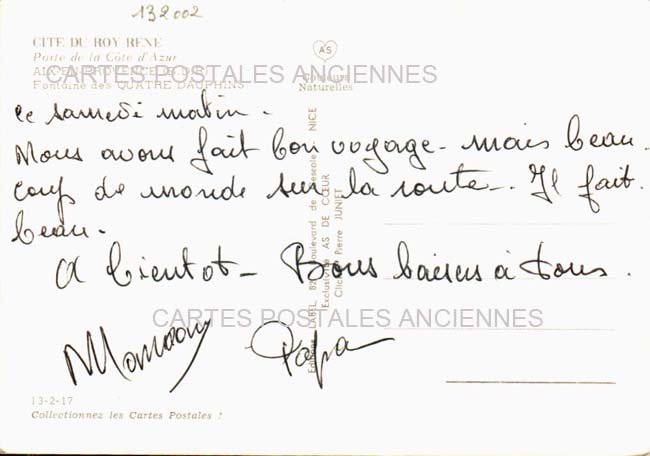 132002
CITE DU ROY RENE
Porte de la Côte d'Azur
AIX-EN-PROVENCE (B.D.R.)
Fontaine des QUATRE DAUPHINS
AS
Couleurs
Naturelles
CARTES POSTALES ANCIENNES
ce samedi matin.
Nous avons fait bon voyage - mais beau-
coup de monde sur la route -. Il fait
beau.
A bientot - Bons baisers à tous.
CARTES POSTALES ANCIENNES
Maman Papa
Editions LABEL, 82, Boulevard de NICE
Exclusivité AS DE CŒUR
Cliché Pierre JUNIET
13-2-17
Collectionnez les Cartes Postales !